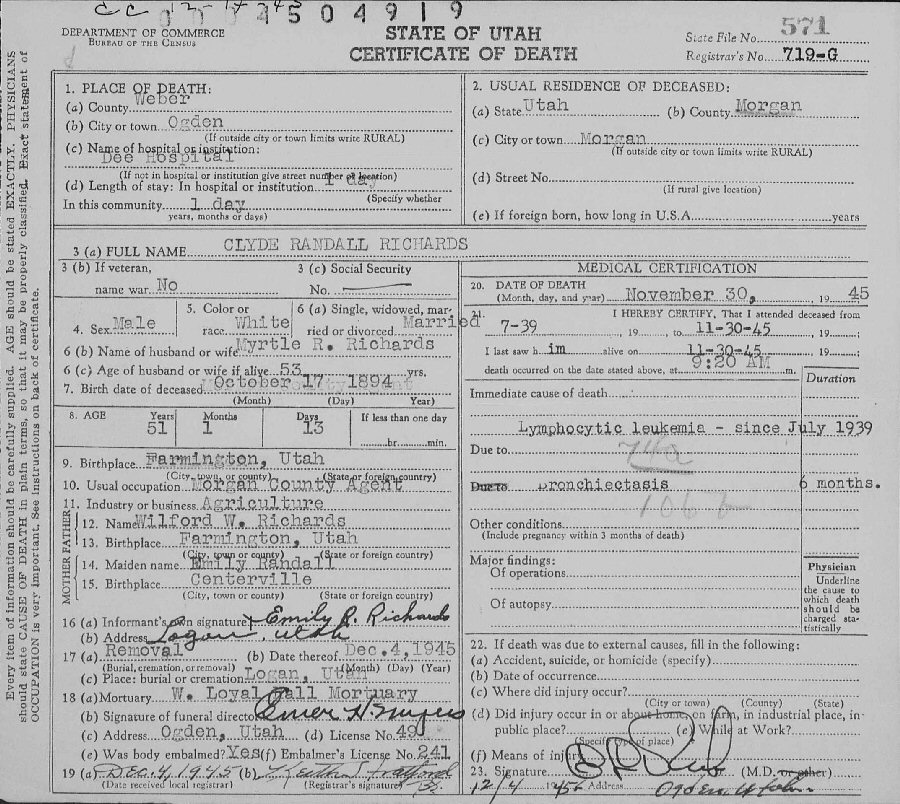 0004504919
DEPARTMENT OF COMMERCE
BUREAU OF THE CENSUS
STATE OF UTAH
CERTIFICATE OF DEATH
State File No. 571
Registrar's No. 719-G
Every item of information should be carefully supplied. AGE should be stated EXACTLY. PHYSICIANS
should state CAUSE OF DEATH in plain terms, so that it may be properly classified. Exact statement of
OCCUPATION is very important. See instructions on back of certificate.
1. PLACE OF DEATH:
(a) County Weber
(b) City or town Ogden
(If outside city or town limits write RURAL)
(c) Name of hospital or institution:
Dee Hospital
(If not in hospital or institution give street number or location)
(d) Length of stay: In hospital or institution 1 day
(Specify whether
In this community 1 day
years, months or days)
2. USUAL RESIDENCE OF DECEASED:
(a) State Utah (b) County Morgan
(c) City or town Morgan
(If outside city or town limits write RURAL)
(d) Street No.
(If rural give location)
(e) If foreign born, how long in U.S.A. years
3 (a) FULL NAME CLYDE RANDALL RICHARDS
3 (b) If veteran,
name war No
3 (c) Social Security
No.
4. Sex Male
5. Color or
race White
6 (a) Single, widowed, mar-
ried or divorced Married
6 (b) Name of husband or wife Myrtle R. Richards
6 (c) Age of husband or wife if alive 53 yrs.
7. Birth date of deceased October 17 1894
(Month) (Day) Year)
8. AGE Years Months Days If less than one day
51 1 13 hr. min.
9. Birthplace Farmington, Utah
(City, town, or county) (State or foreign country)
10. Usual occupation Morgan County Agent
11. Industry or business Agriculture
FATHER
12. Name Wilford W. Richards
13. Birthplace Farmington, Utah
(City, town or county) (State or foreign country)
MOTHER
14. Maiden name Emily Randall
15. Birthplace Centerville
(City, town or county) (State or foreign country)
16 (a) Informant's own signature Emily R. Richards
(b) Address Logan, Utah
17 (a) Removal (b) Date thereof Dec. 4, 1945
(Burial, cremation, or removal) (Month) (Day) (Year)
(c) Place: burial or cremation Logan, Utah
18 (a) Mortuary W. Loyal Hall Mortuary
(b) Signature of funeral director
(c) Address Ogden, Utah (d) License No. 49
(e) Was body embalmed? Yes (f) Embalmer's License No. 241
19 (a) Dec. 4, 1945 (b)
(Date received local registrar) (Registrar's signature)
MEDICAL CERTIFICATION
20. DATE OF DEATH
(Month, day, and year) November 30, 19 45
21. I HEREBY CERTIFY, That I attended deceased from
7-39 19 to 11-30-45 19
I last saw h im alive on 11-30-45 19
death occurred on the date stated above, at 9:20 AM m.
Duration
Immediate cause of death
Lymphocytic leukemia - since July 1939
Due to 74a
Due to Bronchiectasis 6 months.
106 b
Other conditions
(Include pregnancy within 3 months of death)
Major findings:
Of operations
Of autopsy
Physician
Underline
the cause to
which death
should be
charged sta-
tistically
22. If death was due to external causes, fill in the following:
(a) Accident, suicide, or homicide (specify)
(b) Date of occurrence
(c) Where did injury occur?
(City or town) (County) (State)
(d) Did injury occur in or about home, on farm, in industrial place, in
public place? (e) While at Work?
(Specify type of place)
(f) Means of injury
23. Signature (M.D. or other)
12/4 1945 Address Ogden, Utah